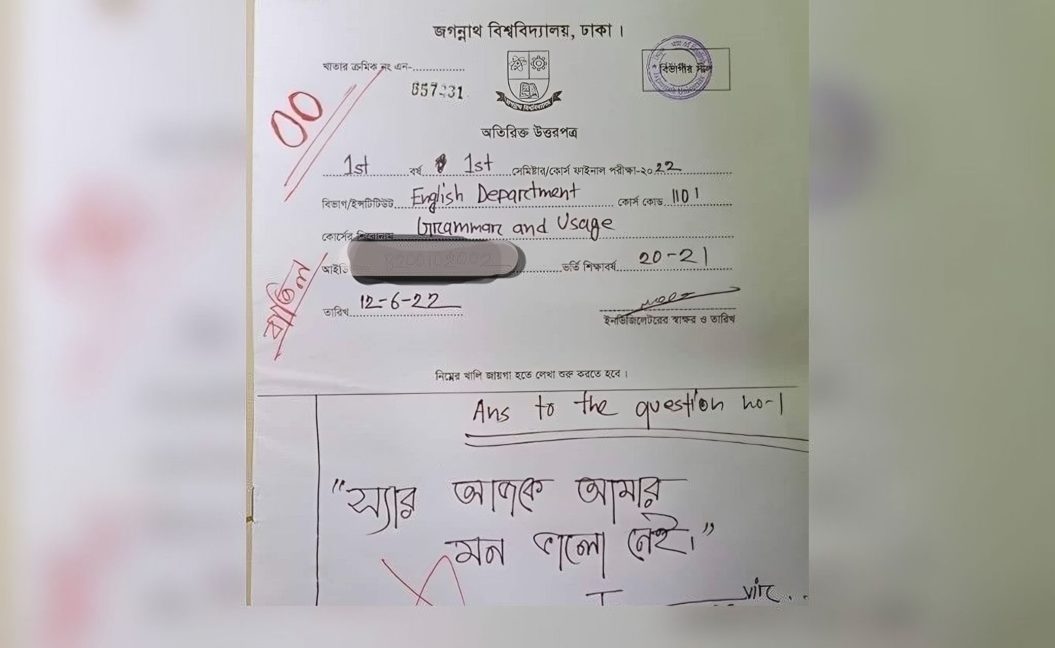 জগন্নাথ বিশ্ববিদ্যালয়, ঢাকা।
খাতার ক্রমিক নং এন-
বিভাগীয় সীল
অতিরিক্ত উত্তরপত্র
00
1st বর্ষ 1st সেমিষ্টার/কোর্স ফাইনাল পরীক্ষা-২০22
বিভাগ/ইন্সটিটিউট English Department কোর্স কোড 1101
কোর্সের শিরোনাম Grammar and Usage
আইডি ভর্তি শিক্ষাবর্ষ 20-21
বাতিল
তারিখ 12-6-22
ইনভিজিলেটরের স্বাক্ষর ও তারিখ
নিম্নের খালি জায়গা হতে লেখা শুরু করতে হবে।
Ans to the question no-1
"স্যার আজকে আমার
মন ভালো নেই।"